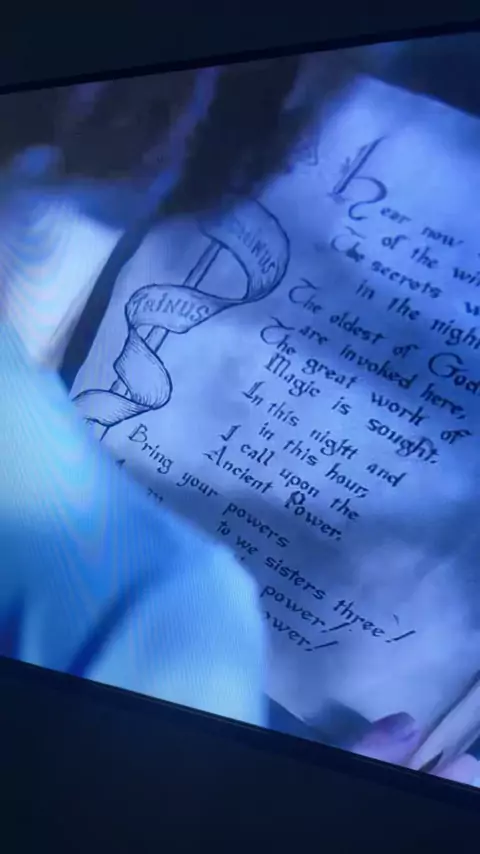 TRINUS
TRINUS
hear now
of the
The secrets
in the night
The oldest of God
are invoked here,
The great work of
Magic is sought.
In this night and
in this hour,
I call upon the
Ancient Power.
Bring your powers
to we sisters three!
power!
ower!